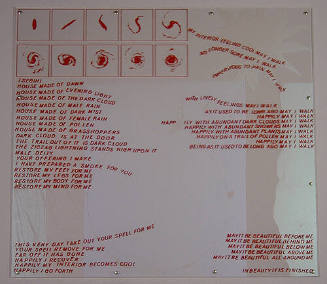 TSEGIHI
HOUSE MADE OF DAWN
HOUSE MADE OF EVENING LIGHT
HOUSE MADE OF THE DARK CLOUD
HOUSE MADE OF MALE RAIN
HOUSE MADE OF DARK MIST
HOUSE MADE OF FEMALE RAIN
HOUSE MADE OF POLLEN
HOUSE MADE OF GRASSHOPPERS
DARK CLOUD IS AT THE DOOR
THE TRAIL OUT OF IT IS DARK CLOUD
THE ZIGZAG LIGHTNING STANDS HIGH UPON IT
MALE DEITY
YOUR OFFERING I MAKE
I HAVE PREPARED A SMOKE FOR YOU
RESTORE MY FEET FOR ME
RESTORE MY LEGS FOR ME
RESTORE MY BODY FOR ME
RESTORE MY MIND FOR ME
THIS VERY DAY TAKE OUT YOUR SPELL FOR ME
YOUR SPELL REMOVE FOR ME
FAR OFF IT HAS GONE
HAPPILY I RECOVER
HAPPILY MY INTERIOR BECOMES COOL
HAPPILY I GO FORTH
MY INTERIOR FEELING COOL MAY I WALK
NO LONGER SORE MAY I WALK
IMPERVIOUS TO PAIN MAY I WALK
WITH LIVELY FEELINGS MAY I WALK
AS IT USED TO BE LONG AGO MAY I WALK
HAPPILY MAY I WALK
HAPPILY WITH ABUNDANT DARK CLOUDS MAY I WALK
HAPPILY WITH ABUNDANT SHOWERS MAY I WALK
HAPPILY WITH ABUNDANT PLANTS MAY I WALK
HAPPILY ON A TRAIL OF POLLEN MAY I WALK
HAPPILY MAY I WALK
BEING AS IT USED TO BE LONG AGO MAY I WALK
MAY IT BE BEAUTIFUL BEFORE ME
MAY IT BE BEAUTIFUL BEHIND ME
MAY IT BE BEAUTIFUL BELOW ME
MAY IT BE BEAUTIFUL ABOVE ME
MAY IT BE BEAUTIFUL ALL AROUND ME
IN BEAUTY IT IS FINISHED